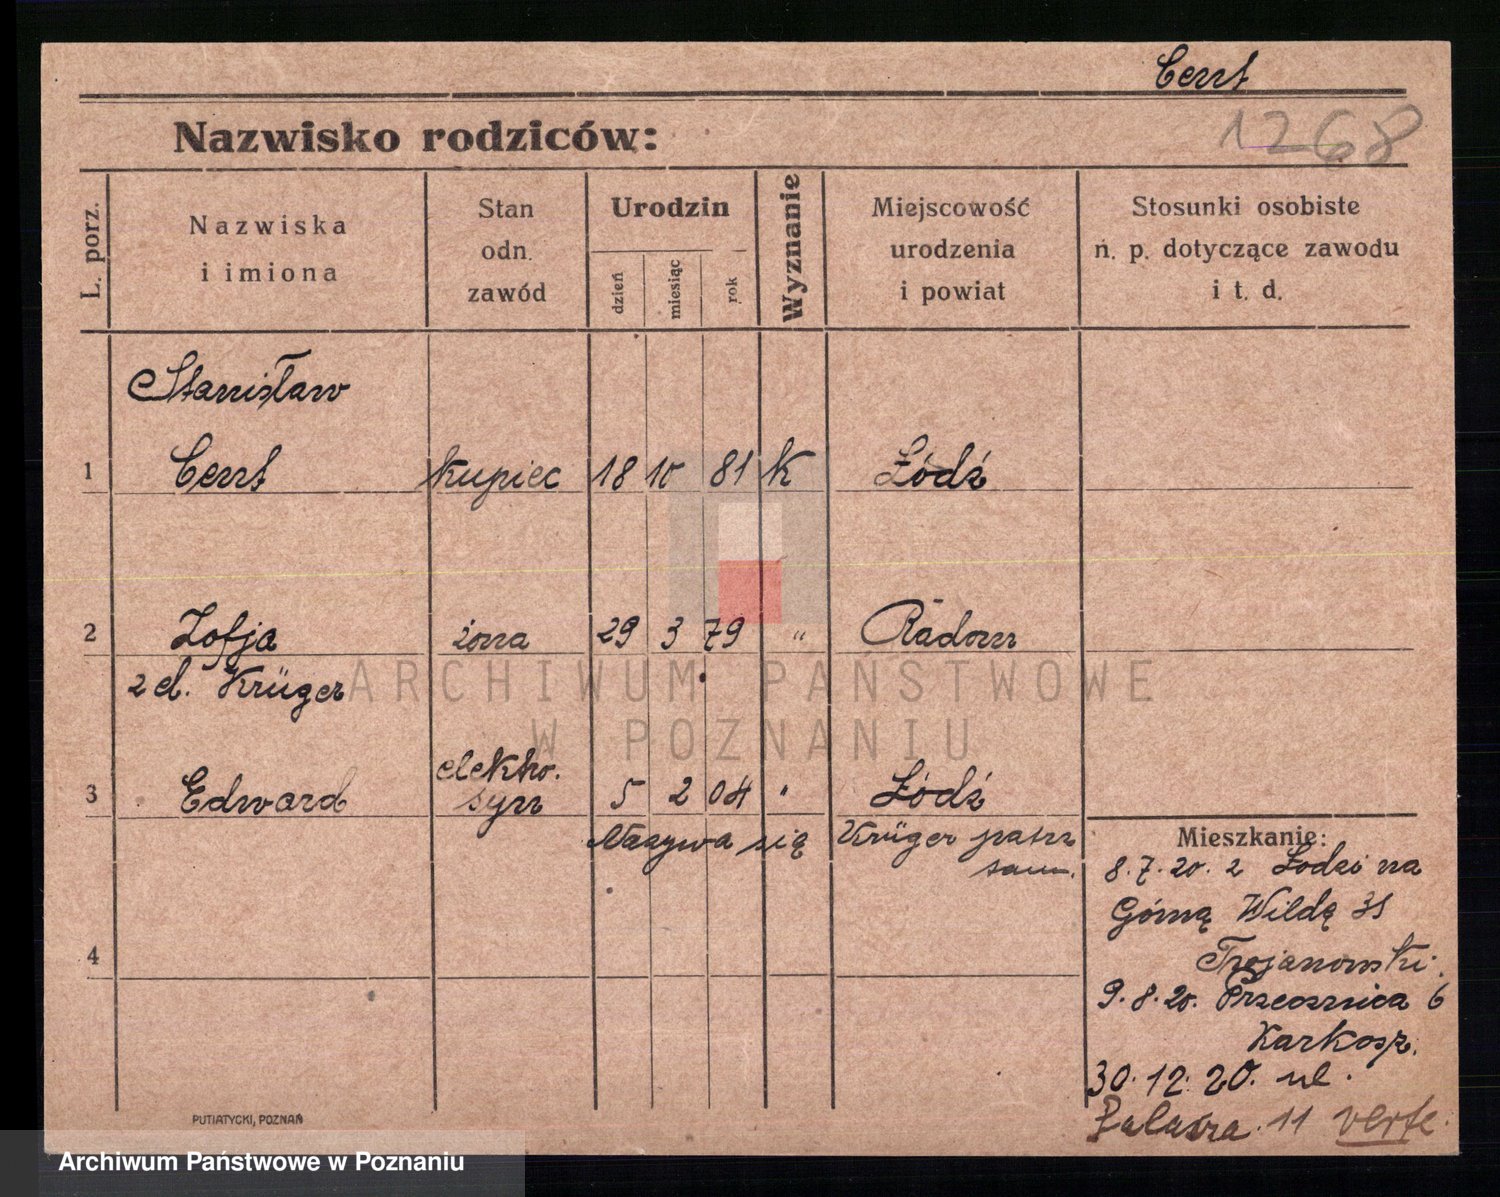 Cerrt
Nazwisko rodziców:
1268
L. porz.
Nazwiska
i imiona
Stan
odn.
zawód
Urodzin
dzień
miesiąc
rok
Wyznanie
Miejscowość
urodzenia
i powiat
Stosunki osobiste
n. p. dotyczące zawodu
i t. d.
Stanisław
1 Cerrt kupiec 18 10 81 K Łódź
2 Zofja żona 29 3 79 " Radom
z d. Krüger
elektro.
3 Edward syn 5 2 04 " Łódź
Nazywa się Krüger patrz
sam.
4
Mieszkanie:
8.7.20. z Łodzi na
Górną Wildę 31
Trojanowski.
9.8.20. Przecznica 6
Karkosz.
30.12.20. ul.
11 verte.
PUTIATYCKI, POZNAŃ
ARCHIWUM PAŃSTWOWE
W POZNANIU
Archiwum Państwowe w Poznaniu